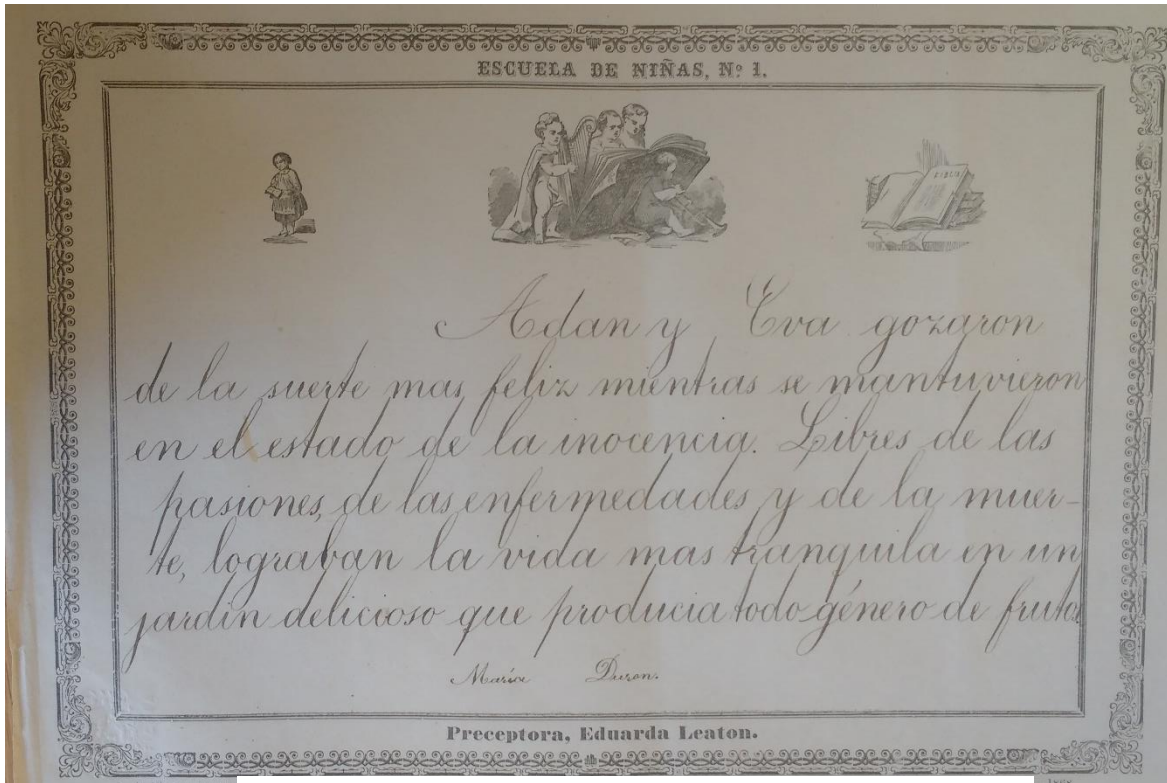 ESCUELA DE NIÑAS, Nº 1.
BIBLIA
Adan y Eva gozaron
de la suerte mas feliz mientras se mantuvieron
en el estado de la inocencia. Libres de las
pasiones, de las enfermedades y de la muer-
te, lograban la vida mas tranquila en un
jardin delicioso que producia todo género de frutas
María Duran.
Preceptora, Eduarda Leaton.